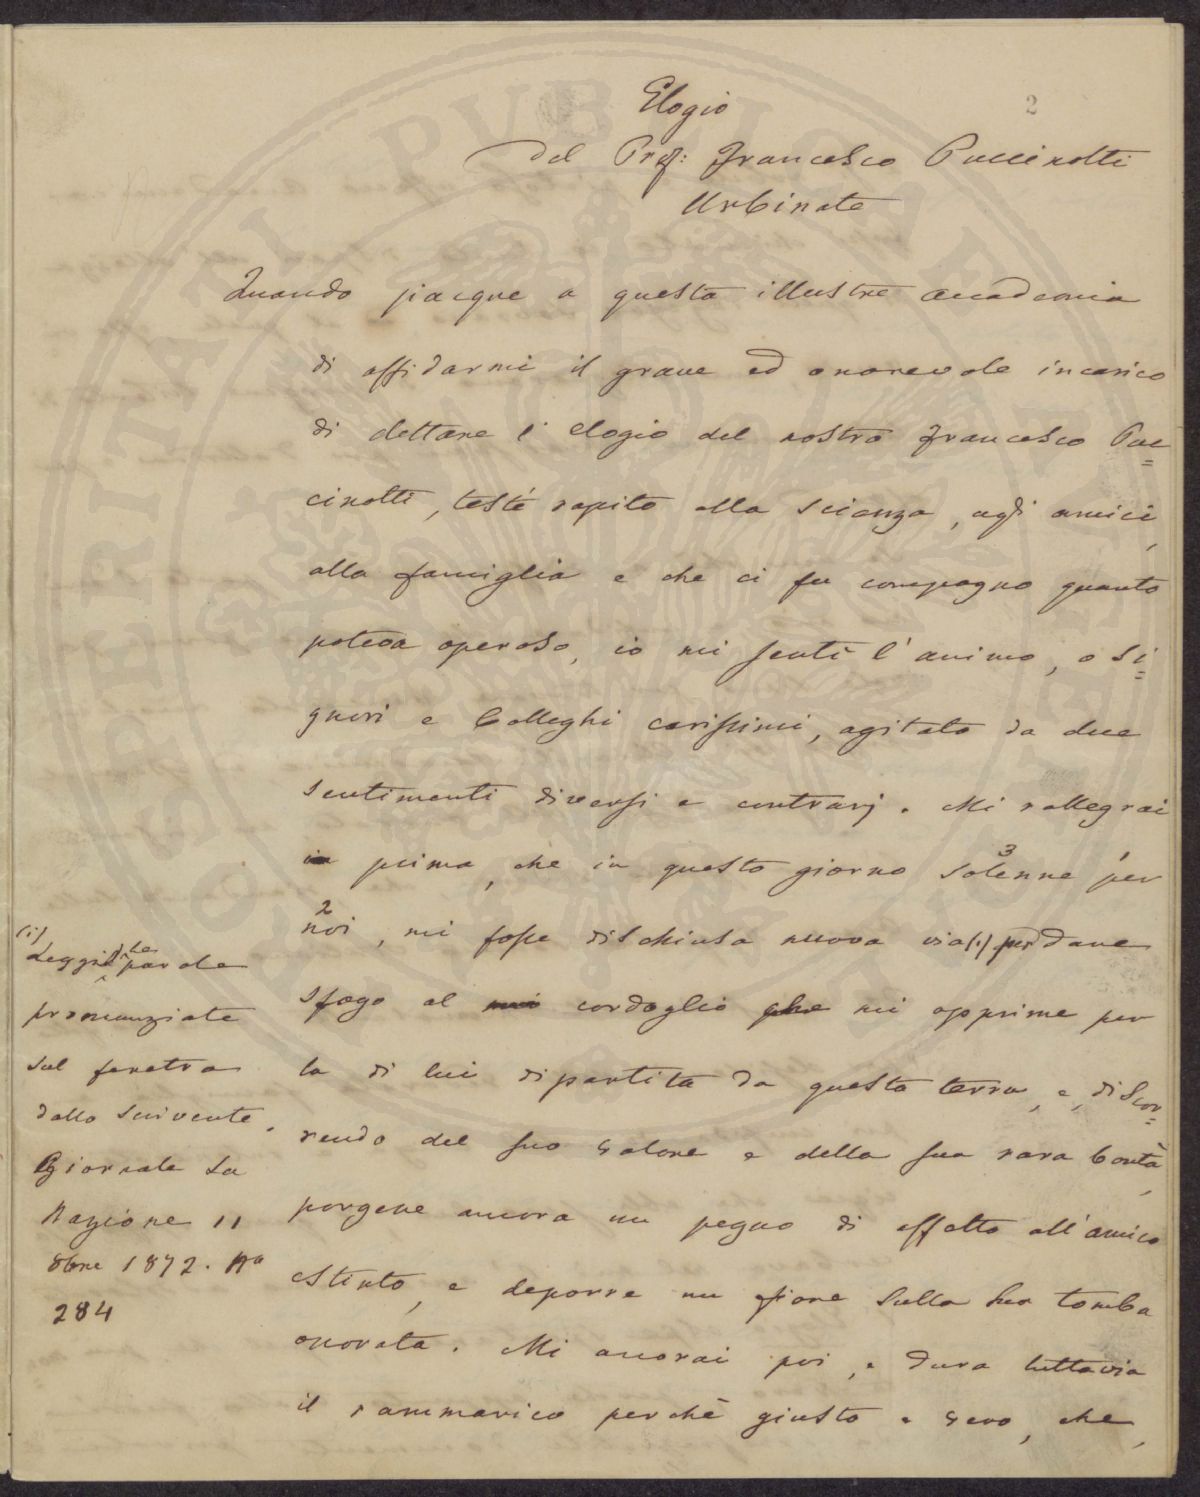 2
Elogio
del Prof: Francesco Puccinotti
Urbinate
Quando piacque a questa illustre accademia
di affidarmi il grave ed onorevole incarico
di dettare l'elogio del nostro Francesco Puc=
cinotti, testè rapito alla scienza, agli amici,
alla famiglia e che ci fu compagno quanto
poteva operoso, io mi sentì l'animo, o Si=
gnori e Colleghi carissimi, agitato da due
sentimenti diversi e contrarj. Mi rallegrai
in prima, che in questo giorno solenne 3 per
noi 2, mi fosse dischiusa nuova via (1) per dare
sfogo al mio cordoglio che mi opprime per
la di lui dipartita da questa terra, e, discor=
rendo del suo valore e della sua rara bontà,
porgere ancora un pegno di affetto all'amico
estinto, e deporre un fiore sulla sua tomba
onorata. Mi accorai poi, e dura tuttavia
il rammarico perchè giusto e vero, che,
(1)
Leggi le parole
pronunziate
sul feretro
dallo scrivente.
Giornale La
Nazione 11
8bre 1872. No
284